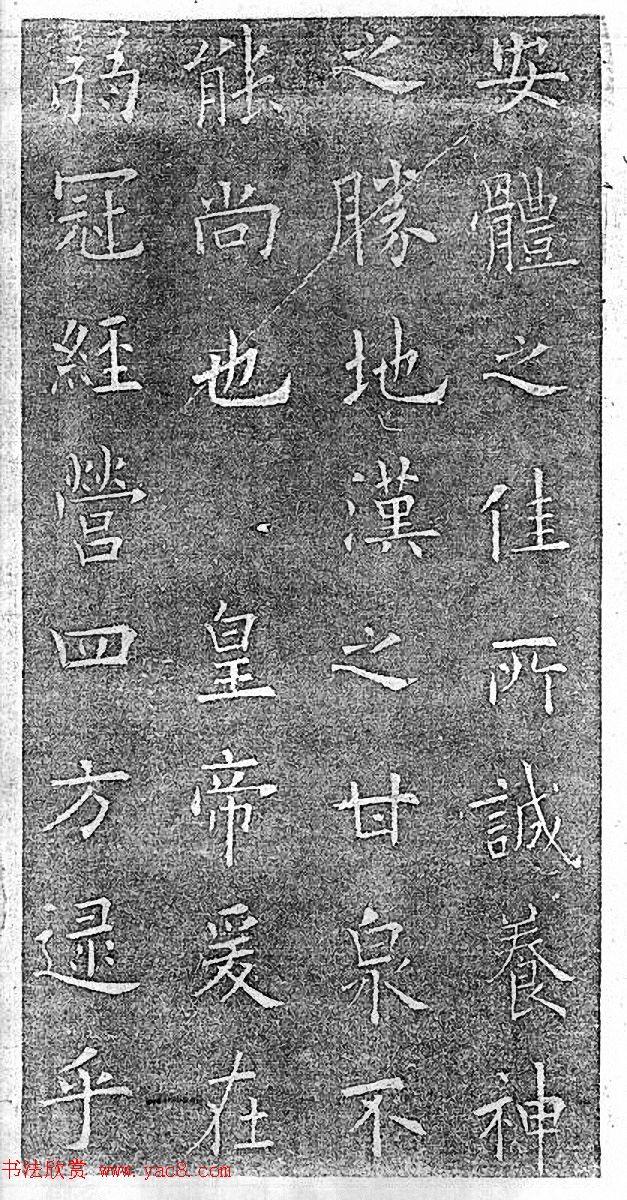 安體之佳所誠養神
之勝地漢之甘泉不
能尚也 皇帝爰在
弱冠經營四方逯乎
书法欣赏 www.yac8.com